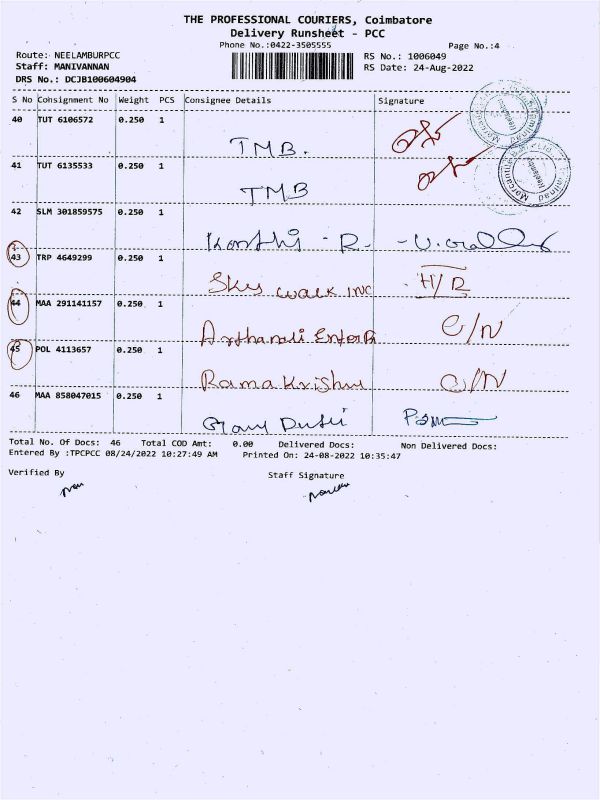 THE PROFESSIONAL COURIERS, Coimbatore
Delivery Runsheet - PCC
Phone No.:0422-3505555
Page No.:4
Route: NEELAMBURPCC
RS No.: 1006049
Staff: MANIVANNAN
RS Date: 24-Aug-2022
DRS No.: DCJB100604904
S No Consignment No Weight PCS Consignee Details Signature
40 TUT 6106572 0.250 1
TMB.
41 TUT 6135533 0.250 1
TMB
42 SLM 301859575 0.250 1
R.
43 TRP 4649299 0.250 1
Sky walk INC H/R
44 MAA 291141157 0.250 1
45 POL 4113657 0.250 1
46 MAA 858047015 0.250 1
Total No. Of Docs: 46 Total COD Amt: 0.00 Delivered Docs: Non Delivered Docs:
Entered By :TPCPCC 08/24/2022 10:27:49 AM Printed On: 24-08-2022 10:35:47
Verified By Staff Signature